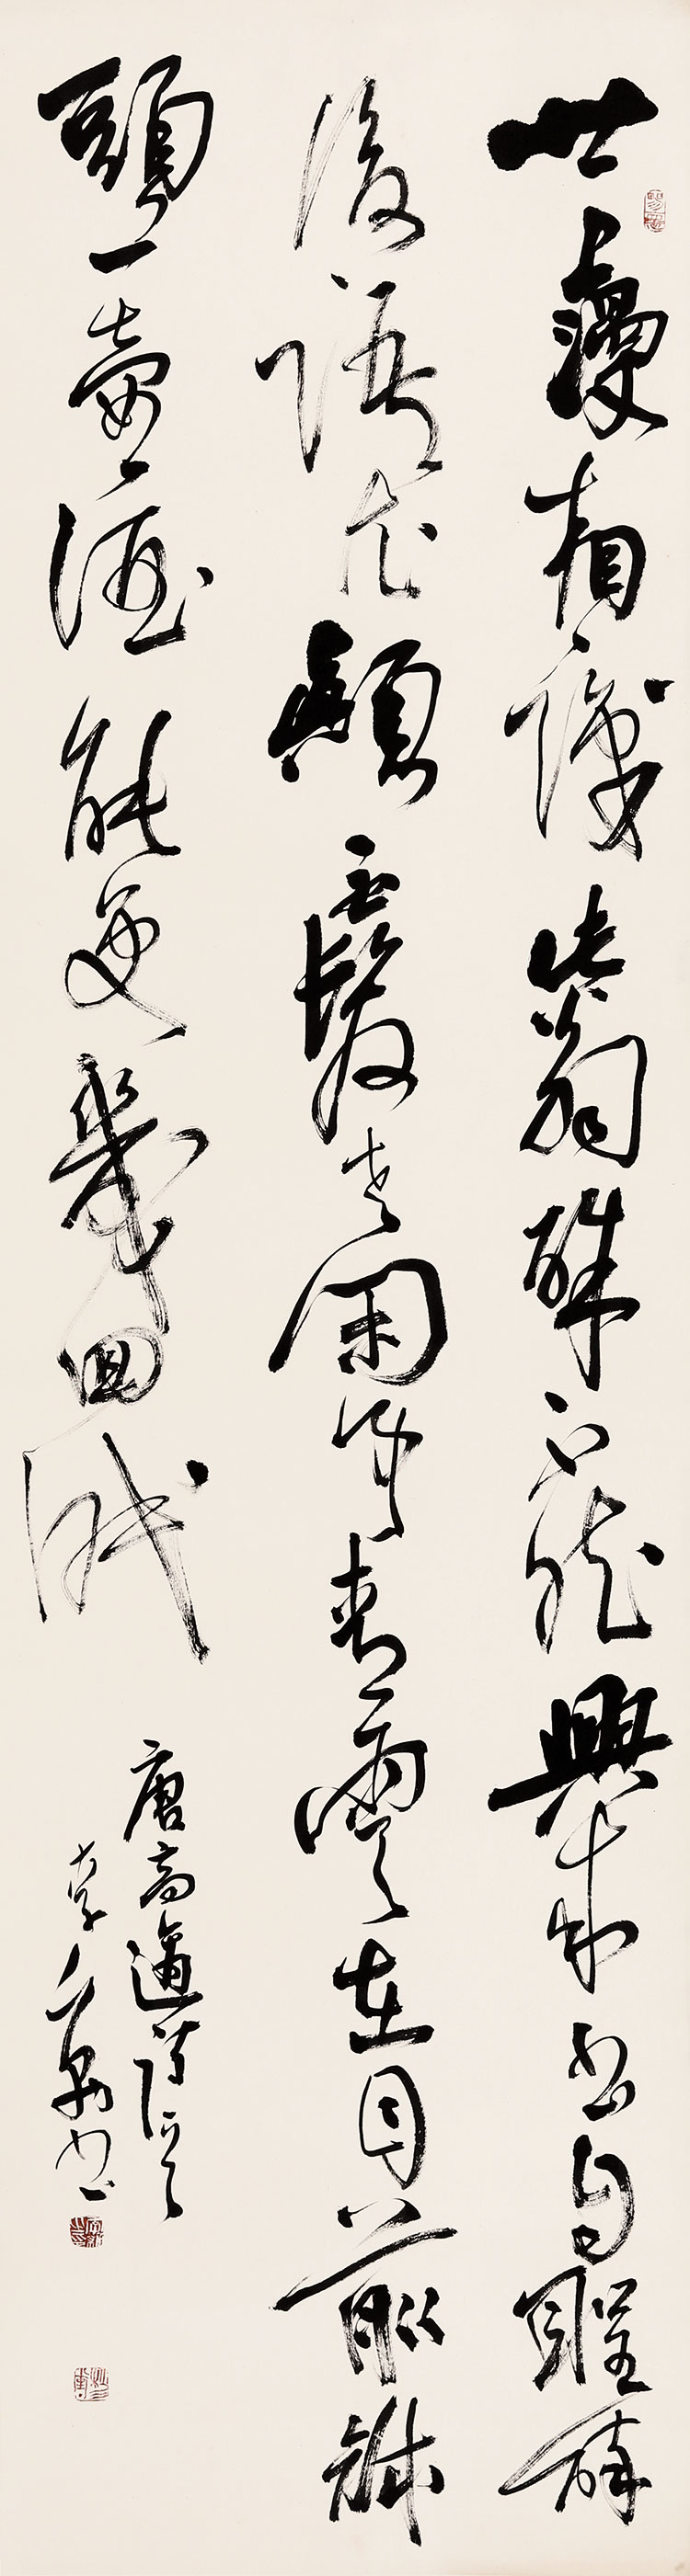 世上謾相識此翁殊不然興來書自聖醉
後語尤顛白髮老閑事青雲在目前牀
頭一壺酒能更幾回眠
唐高適詩
李書